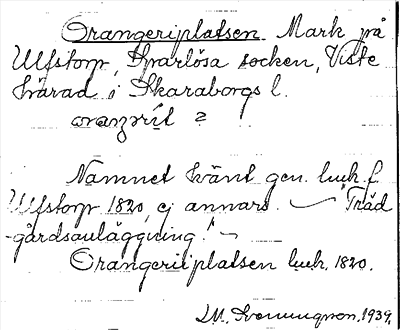 Orangeriplatsen. Mark på
Ulfstorp, Sparlösa socken, Viste
härad i Skaraborgs l.
?
Namnet känt gen. luk. f.
Ulfstorp 1820, ej annars. — "Träd
gårdsanläggning." —
Orangeriiplatsen luk. 1820.
M. 1939.